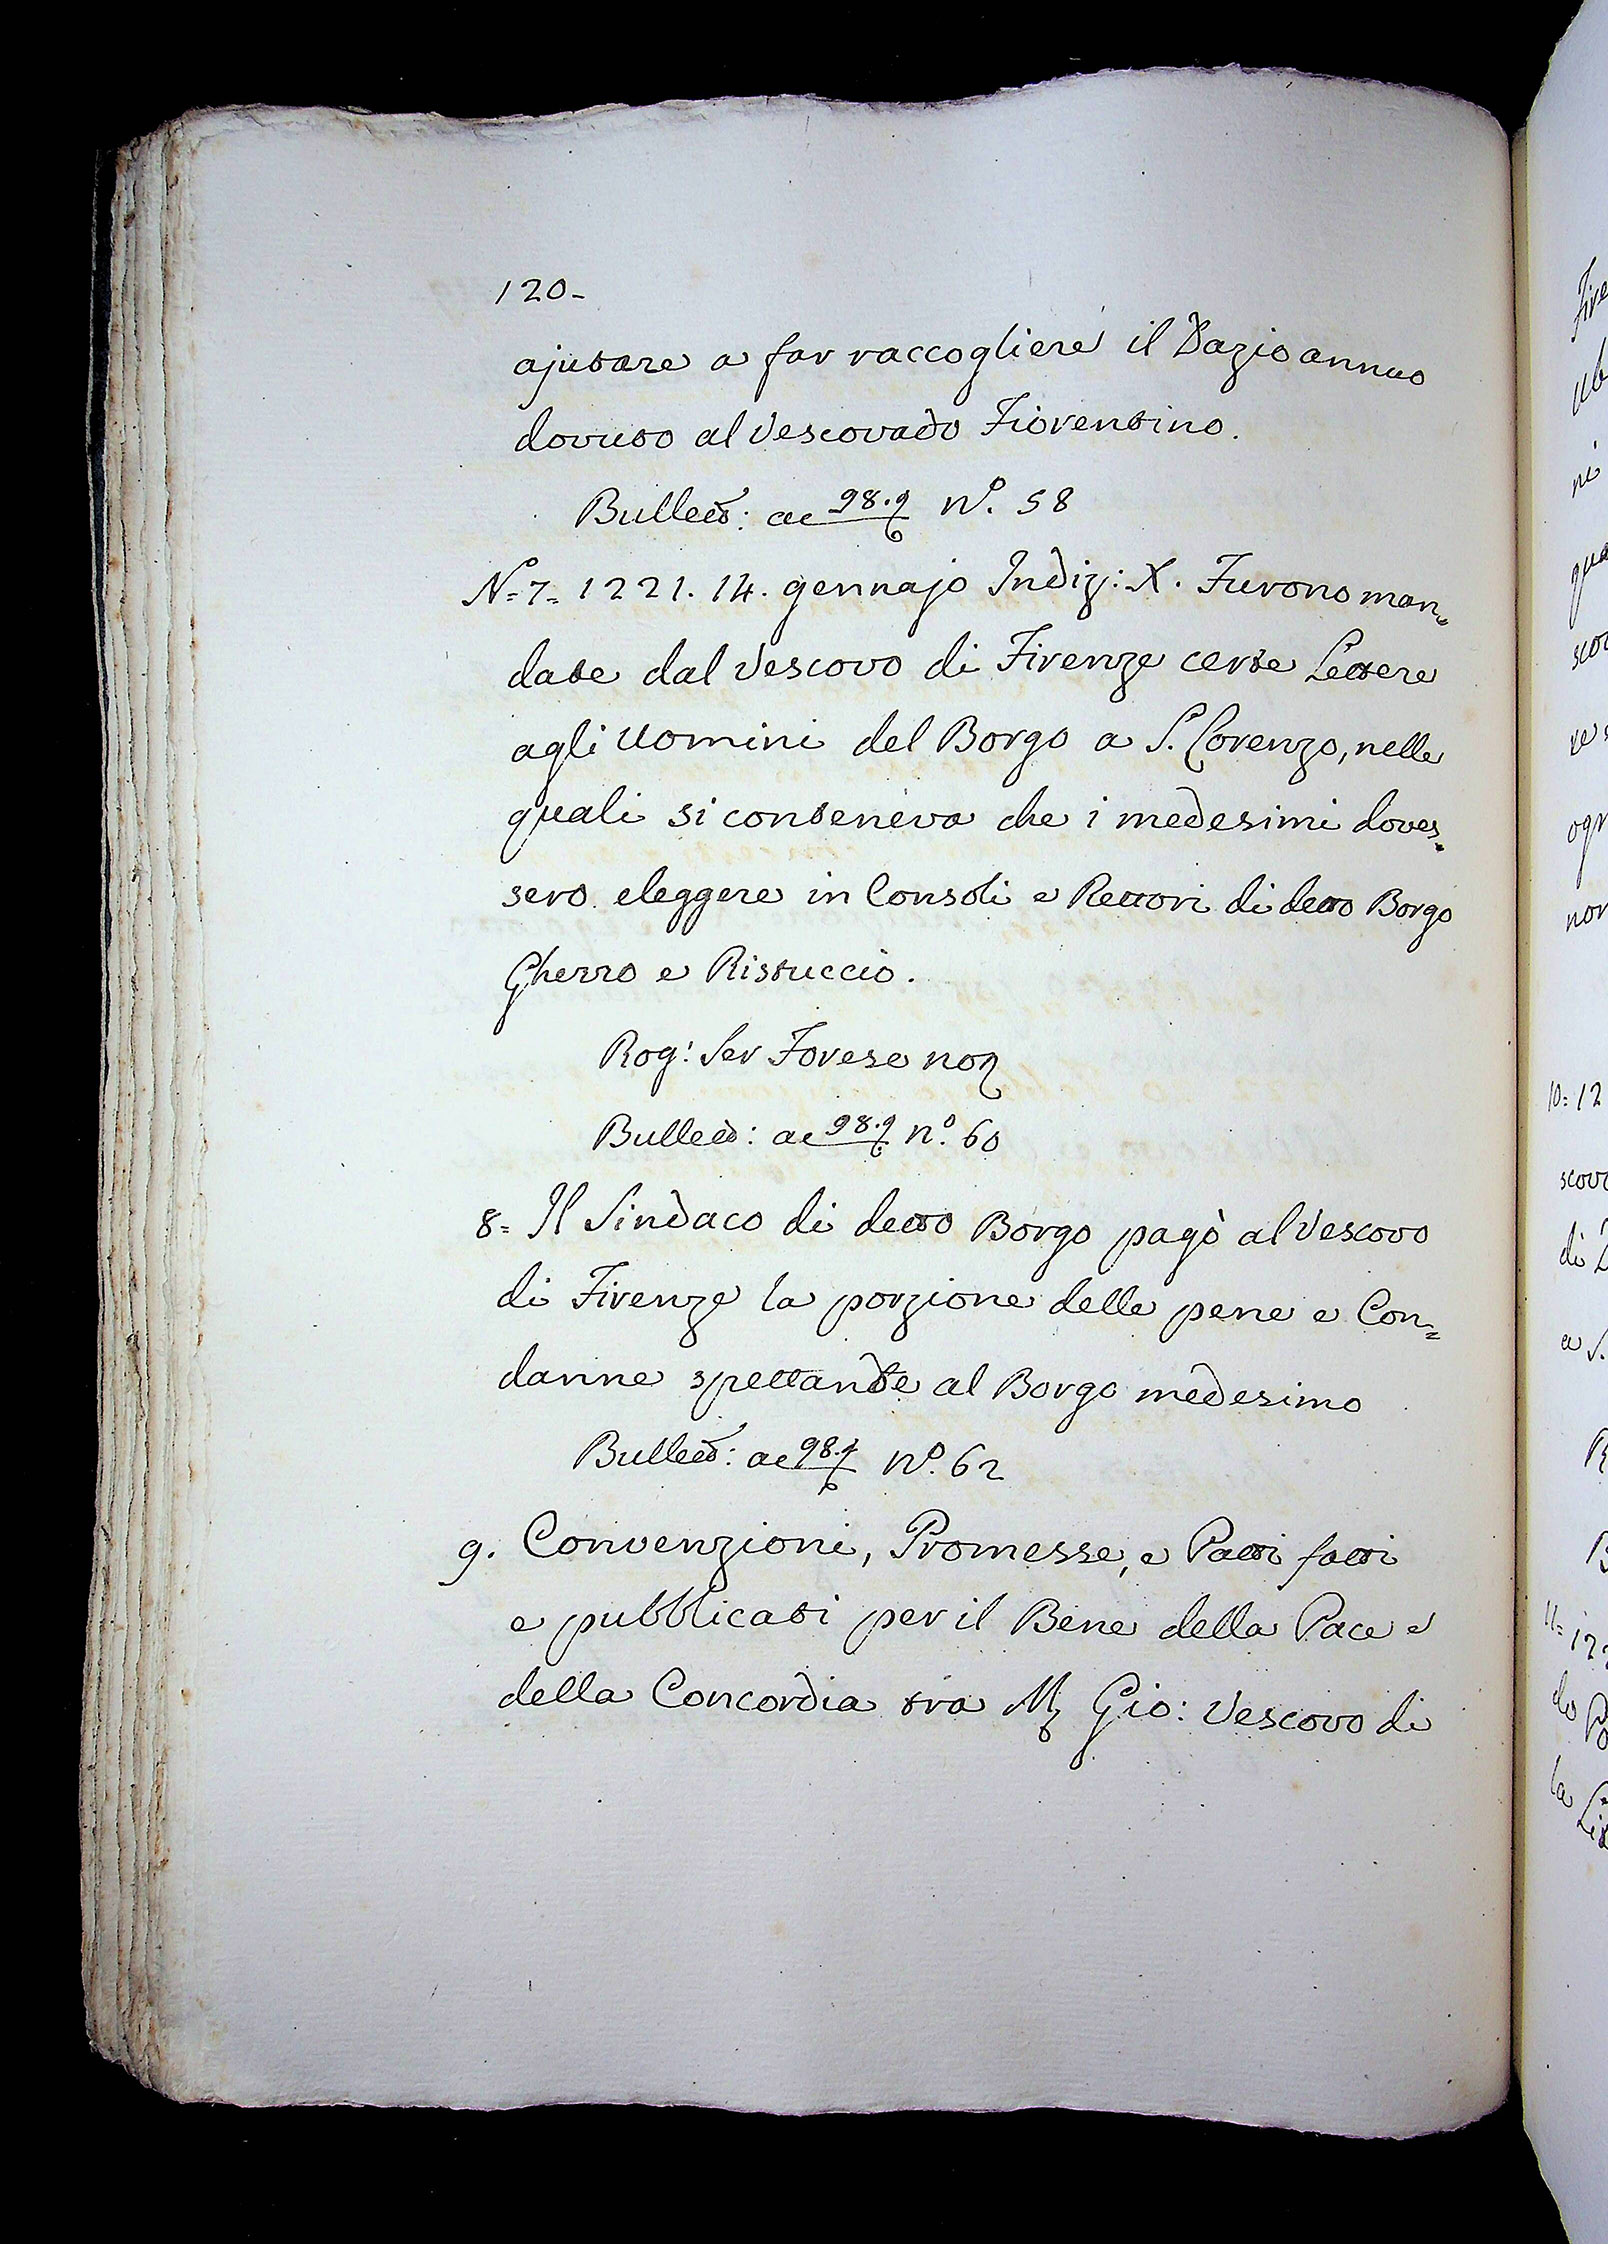 120-
ajutare a far raccogliere il Dazio annuo
dovuto al Vescovado Fiorentino.
Bullett: a c 98. n.º 58
Nº= 7= 1221. 14. gennajo Indiz: X. Furono man=
date dal Vescovo di Firenze certe Lettere
agli Uomini del Borgo a S. Lorenzo, nelle
quali si conteneva che i medesimi doves=
sero eleggere in Consoli e Rettori di detto Borgo
Gherro e Ristuccio.
Rog: Ser Forese
Bullett: a c 98. n.º 60
8= Il Sindaco di detto Borgo pagò al Vescovo
di Firenze la porzione delle pene e Con=
danne spettante al Borgo medesimo
Bullett: a c 98. n.º 62
9. Convenzioni, Promesse, e Patti fatti
e pubblicati per il Bene della Pace e
della Concordia tra M. Gio: Vescovo di